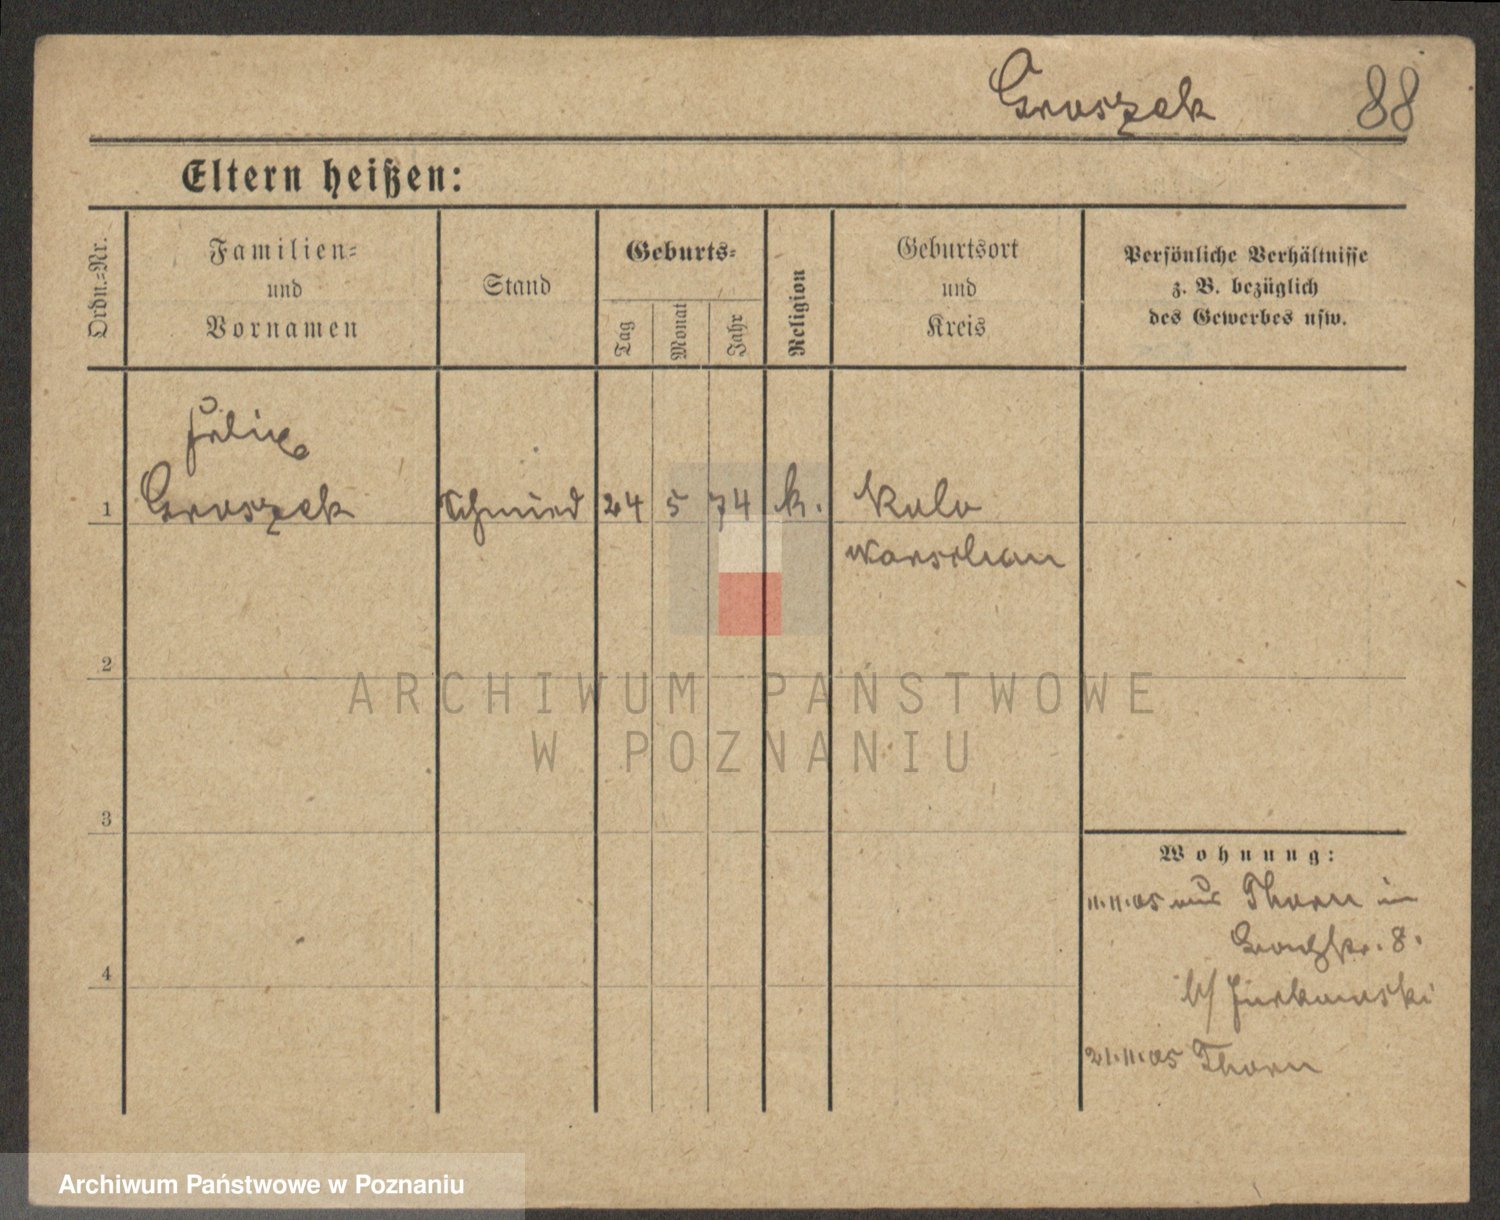 Groszek 88
Eltern heißen:
Ordn.=Nr.
Familien=
und
Vornamen
Stand
Geburts=
Tag
Monat
Jahr
Religion
Geburtsort
und
Kreis
Persönliche Verhältnisse
z. B. bezüglich
des Gewerbes usw.
Felix
1 Groszek Schmied 24 5 74 k. Kolo
Warschau
2
ARCHIWUM PAŃSTWOWE
W POZNANIU
3
Wohnung:
11.11.05 aus Thorn in
8.
b/ Jurkowski
4
21.11.05 Thorn
Archiwum Państwowe w Poznaniu